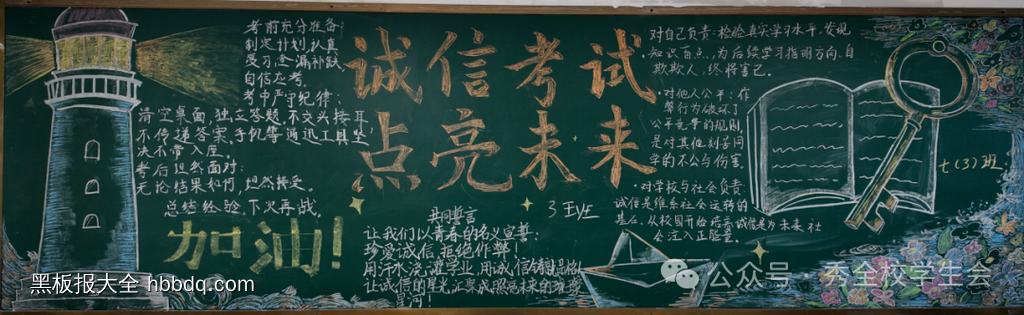 考前充分准备
制定计划,认真
复习,查漏补缺,
自信应考。
考中严守纪律:
清空桌面,独立答题,不交头接耳
不传递答案,手机等通迅工具坚
决不带入座。
考后坦然面对:
无论结果如何,坦然接受。
总结经验 下次再战,
加油!
诚信考试
点亮未来
共同誓言
让我们以青春的名义宣誓:
珍爱诚信,拒绝作弊!
用汗水浇灌学业,用诚信铸
让诚信的星光,汇聚成照亮未来的
星河!
对自己负责:检验真实学习水平,发现
知识盲点,为后续学习指明方向,自
欺欺人,终将害己。
·对他人公平:作
弊行为破坏了
公平竞争的规则,
是对其他刻苦同
学的不公与伤害
·对学校与社会负责:
诚信是维系社会运转的
基石,从校园开始培养诚信是为未来社
会注入正能量。
七(3)班
黑板报大全 hbbdq.com
公众号 秀全校学生会